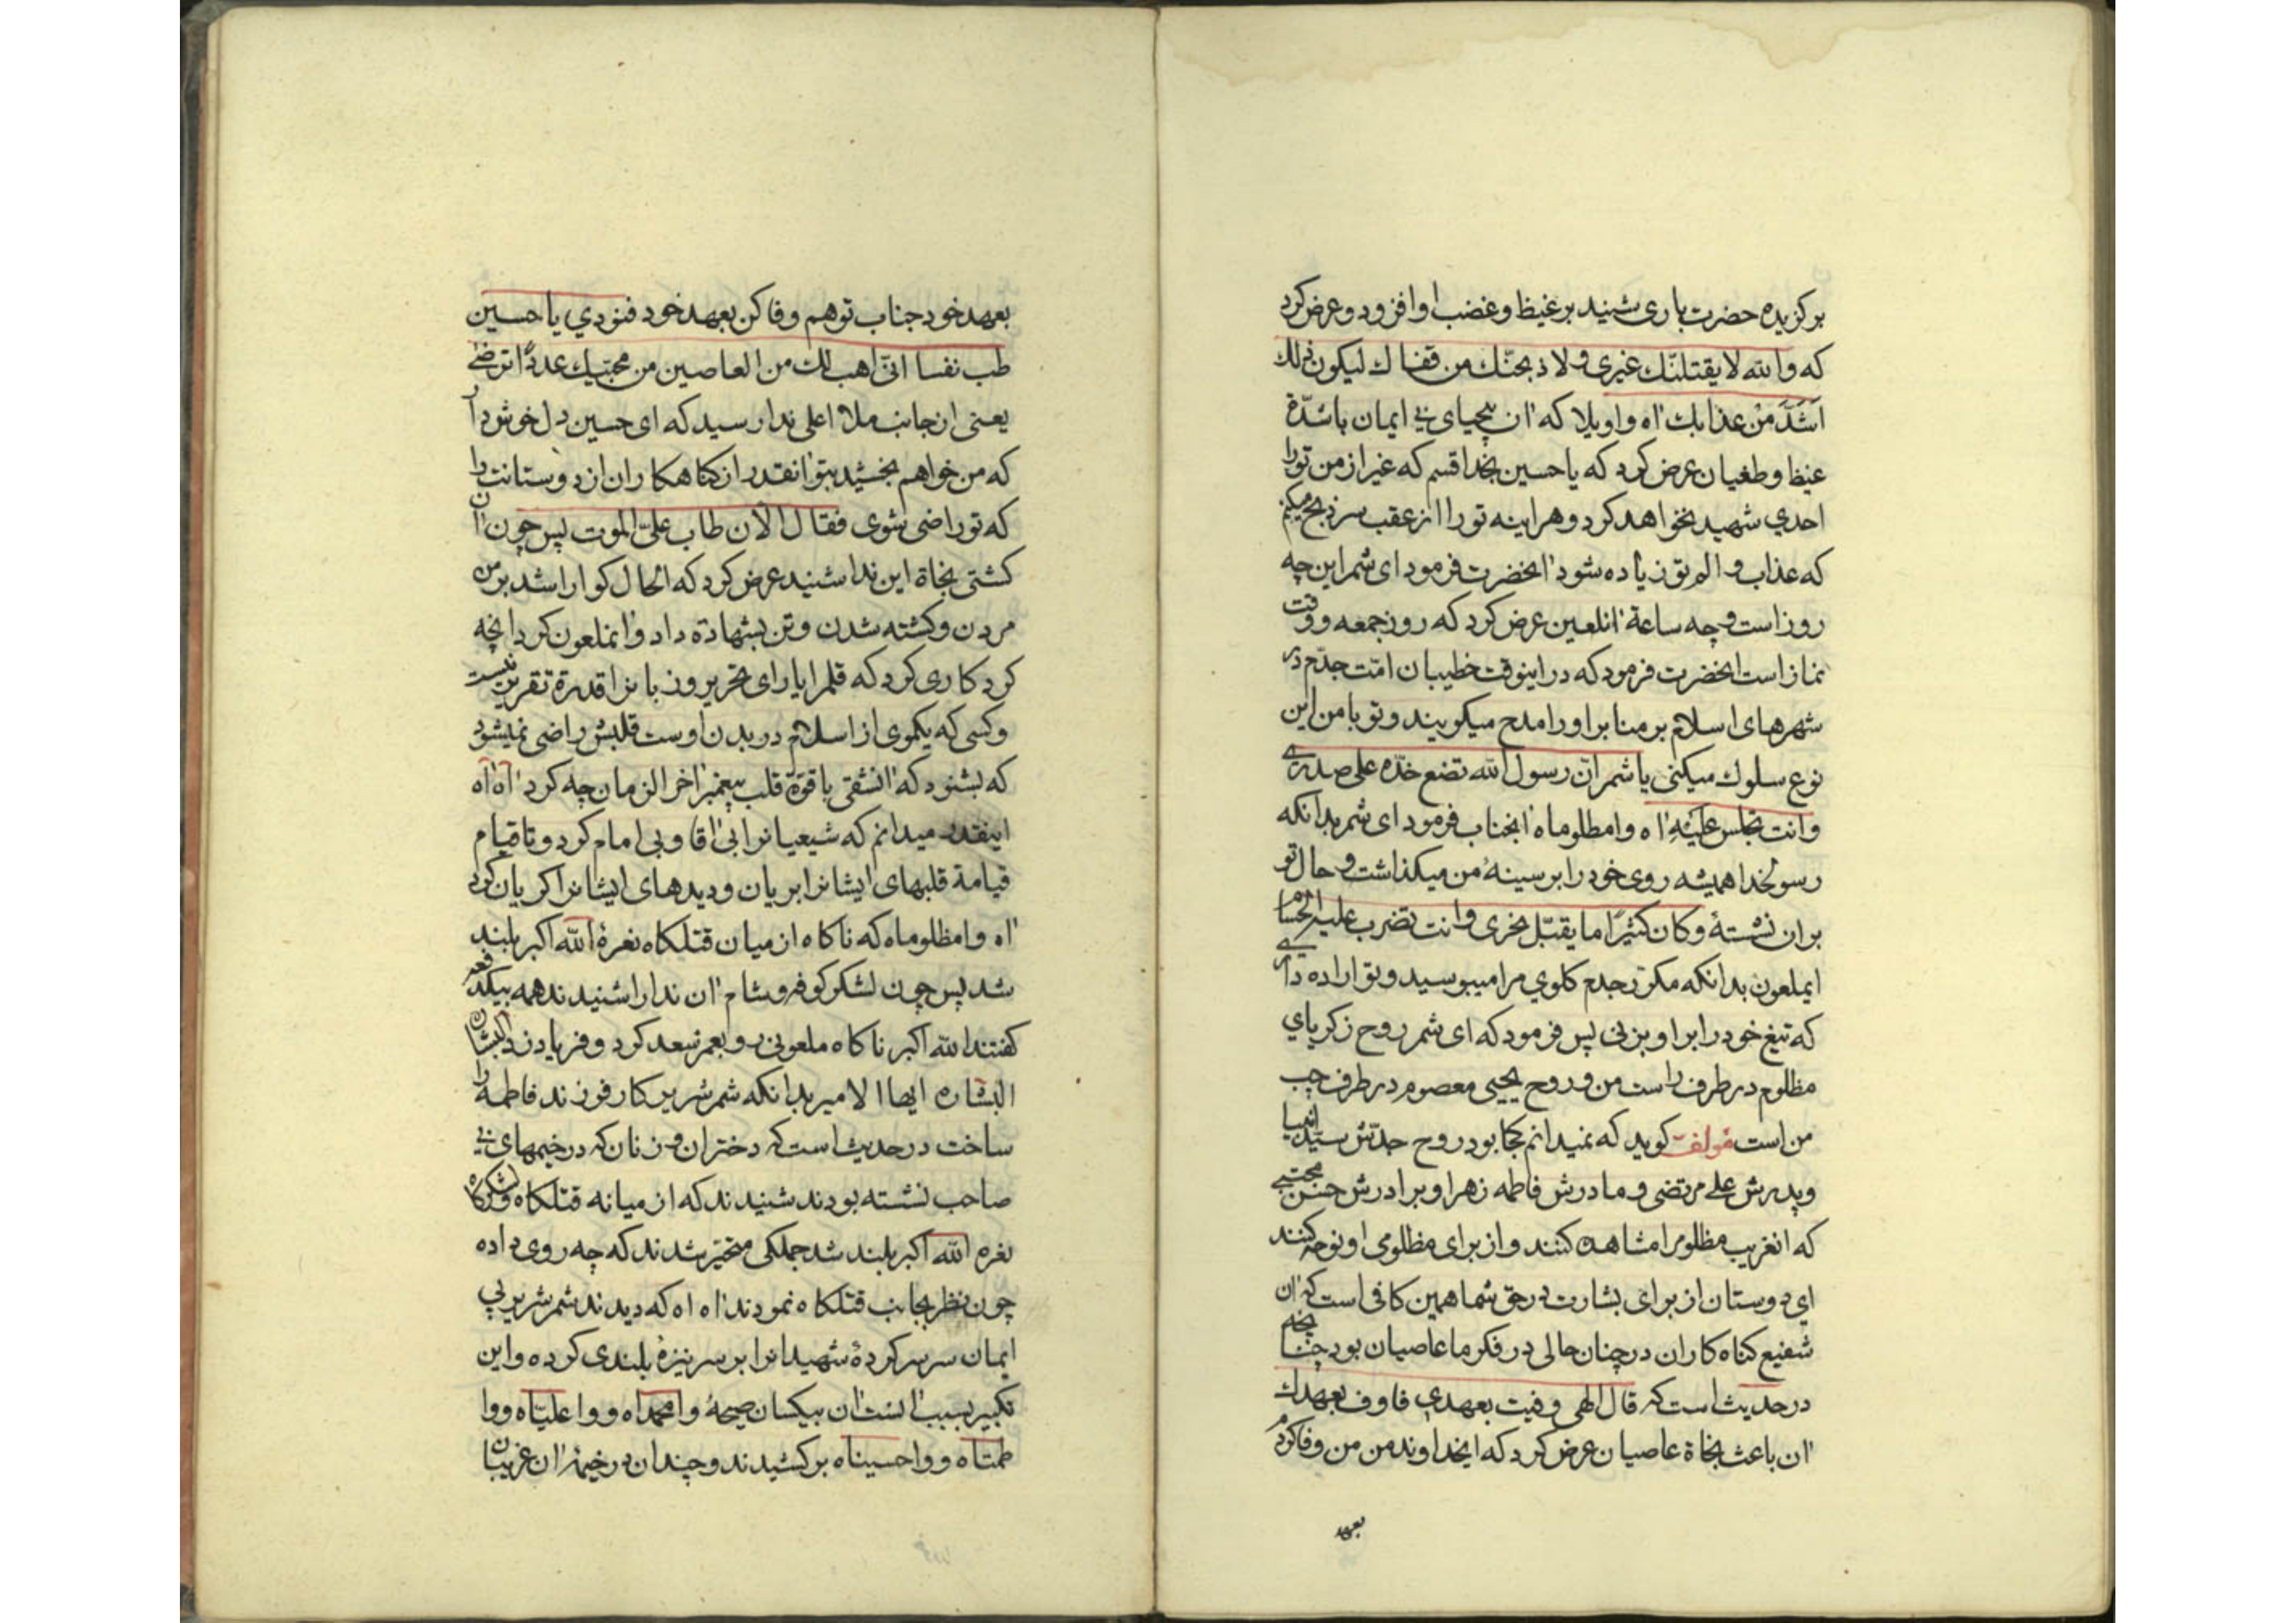 برکزیده حضرت باری شنید بر غیظ و غضب او افزود و عرض کرد
که والله لا یقتلنّك غیری و لاذبحنّك من قفاك لیکون ذلك
اَشَدَّ مِنْ عذابك اه واویلا که ان بیحیای بی ایمان باشدّة
غیظ و طغیان عرض کرد که یا حسین بخدا قسم که غیر از من تورا
احدي شهید نخواهد کرد و هراینه تو را از عقب سر ذبح میکنم
که عذاب و الم تو زیاده شود انحضرت فرمود ای شمر این چه
روز است و چه ساعة انلعین عرض کرد که روز جمعه و وقت
نماز است انحضرت فرمود که در اینوقت خطیبان امّت جدّم در
شهرهای اسلام بر منابر اورا مدح میکویند و تو با من این
نوع سلوك میکنی یا شمر انّ رسول الله تضع خدّه علی صدری
وانت تجلس عَلَیْهِ اه وامظلوماه انجناب فرمود ای شمر بدانکه
رسولخدا همیشه روی خود را بر سینهٔ من میکذاشت و حال تو
بران نشستهٔ و کان کثیرًا ما یقبّل نحری وانت تضرب علیه الحسام
ایملعون بدانکه مکرّر جدم کلوي مرا میبوسید و تو اراده داری
که تیغ خود را بر او بزنی پس فرمود که ای شمر روح زکریاي
مظلوم در طرف راست من و روح یحیی معصوم در طرف چپ
من است مؤلف کوید که نمیدانم کجا بود روح جدّش سیّد انبیا
و پدرش علی مرتضی و مادرش فاطمه زهرا و برادرش حسن مجتبی
که انغریب مظلومرا مشاهده کنند و از برای مظلومی او نوحه کنند
اي دوستان از برای بشارت در حق شما همین کافی است که ان
شفیع کناه کاران در چنان حالی در فکر ما عاصیان بود چنانچه
در حدیث است که قال الهی وفیت بعهدي فاوف بعهدك
ان باعث نجاة عاصیان عرض کرد که ایخداوند من من وفا کردم
بعهد
بعهد خود جناب تو هم وفا کن بعهد خود فنودي یا حسین
طب نفسا انّی اهب لك من العاصین من محبّیك عددًا ترضی
یعنی از جانب ملاء اعلی ندا رسید که ای حسین دل خوش دار
که من خواهم بخشید بتو انقدر از کناهکاران از دوستانت را
که تو راضی شوی فقال الآن طاب علیّ الموت پس چون ان
کشتی نجاة این ندا شنید عرض کرد که الحال کوارا شد بر من
مردن و کشته شدن و تن بشهادة داد و انملعون کرد انچه
کرد کاری کرد که قلمرا یارای تحریر و زبانرا قدرة تقریر نیست
و کسی که یکموی از اسلام در بدن اوست قلبش راضی نمیشود
که بشنود که انشقی با قوّة قلب پیغمبر اخر الزمان چه کرد اه اه
اینقدر میدانم که شیعیانرا بی اقا و بی امام کرد و تا قیام
قیامة قلبهای ایشانرا بریان و دیدهای ایشانرا کریان کرد
اه وامظلوماه که ناکاه از میان قتلکاه نعرهٔ الله اکبر بلند
شد پس چون لشکر کوفه و شام ان ندا را شنیدند همه بیکدفعه
کفتند الله اکبر ناکاه ملعونی رو بعمر سعد کرد و فریاد زد البشارة
البشاره ایها الامیر بدانکه شمر شریر کار فرزند فاطمه را
ساخت در حدیث است که دختران و زنان که در خیمهای بی
صاحب نشسته بودند شنیدند که از میانه قتلکاه و لشکرکاه
نعره الله اکبر بلند شد جملکی متحیّر شدند که چه روی داده
چون نظر بجانب قتلکاه نمودند اه اه که دیدند شمر شریر بی
ایمان سر سرکردهٔ شهیدانرا بر سر نیزه بلندی کرده و این
تکبیر بسبب انست ان بیکسان صیحهٔ وامحمداه و واعلیّاه و وا
طمتاه و واحسیناه برکشیدند و چندان در خیمه ان غریبان